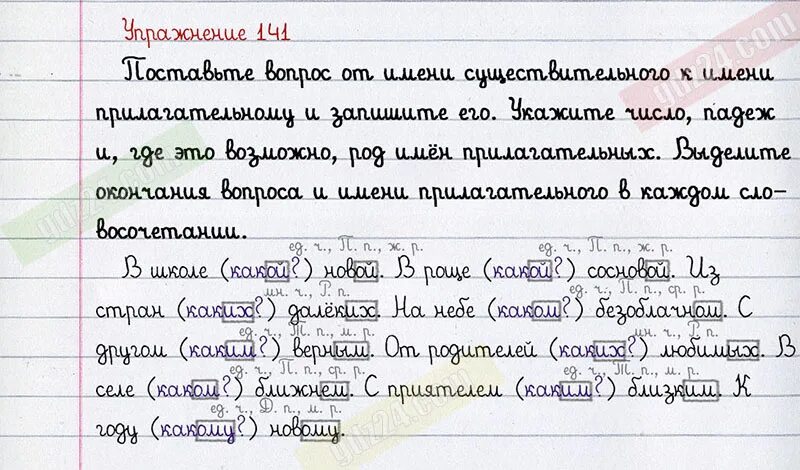 Упражнение 141
Поставьте вопрос от имени существительного к имени
прилагательному и запишите его. Укажите число, падеж
и, где это возможно, род имён прилагательных. Выделите
окончания вопроса и имени прилагательного в каждом сло-
восочетании.
ед. ч., П. п., ж. р. ед. ч., П. п., ж. р.
В школе (какой?) новой. В роще (какой?) сосновой. Из
мн. ч., Р. п. ед. ч., П. п., ср. р.
стран (каких?) далёких. На небе (каком?) безоблачном. С
ед. ч., Т. п., м. р. мн. ч., Р. п.
другом (каким?) верным. От родителей (каких?) любимых. В
ед. ч., П. п., ср. р. ед. ч., Т. п., м. р.
селе (каком?) ближнем. С приятелем (каким?) близким. К
ед. ч., Д. п., м. р.
году (какому?) новому.
gdz24.com
gdz24.com
gdz24.com